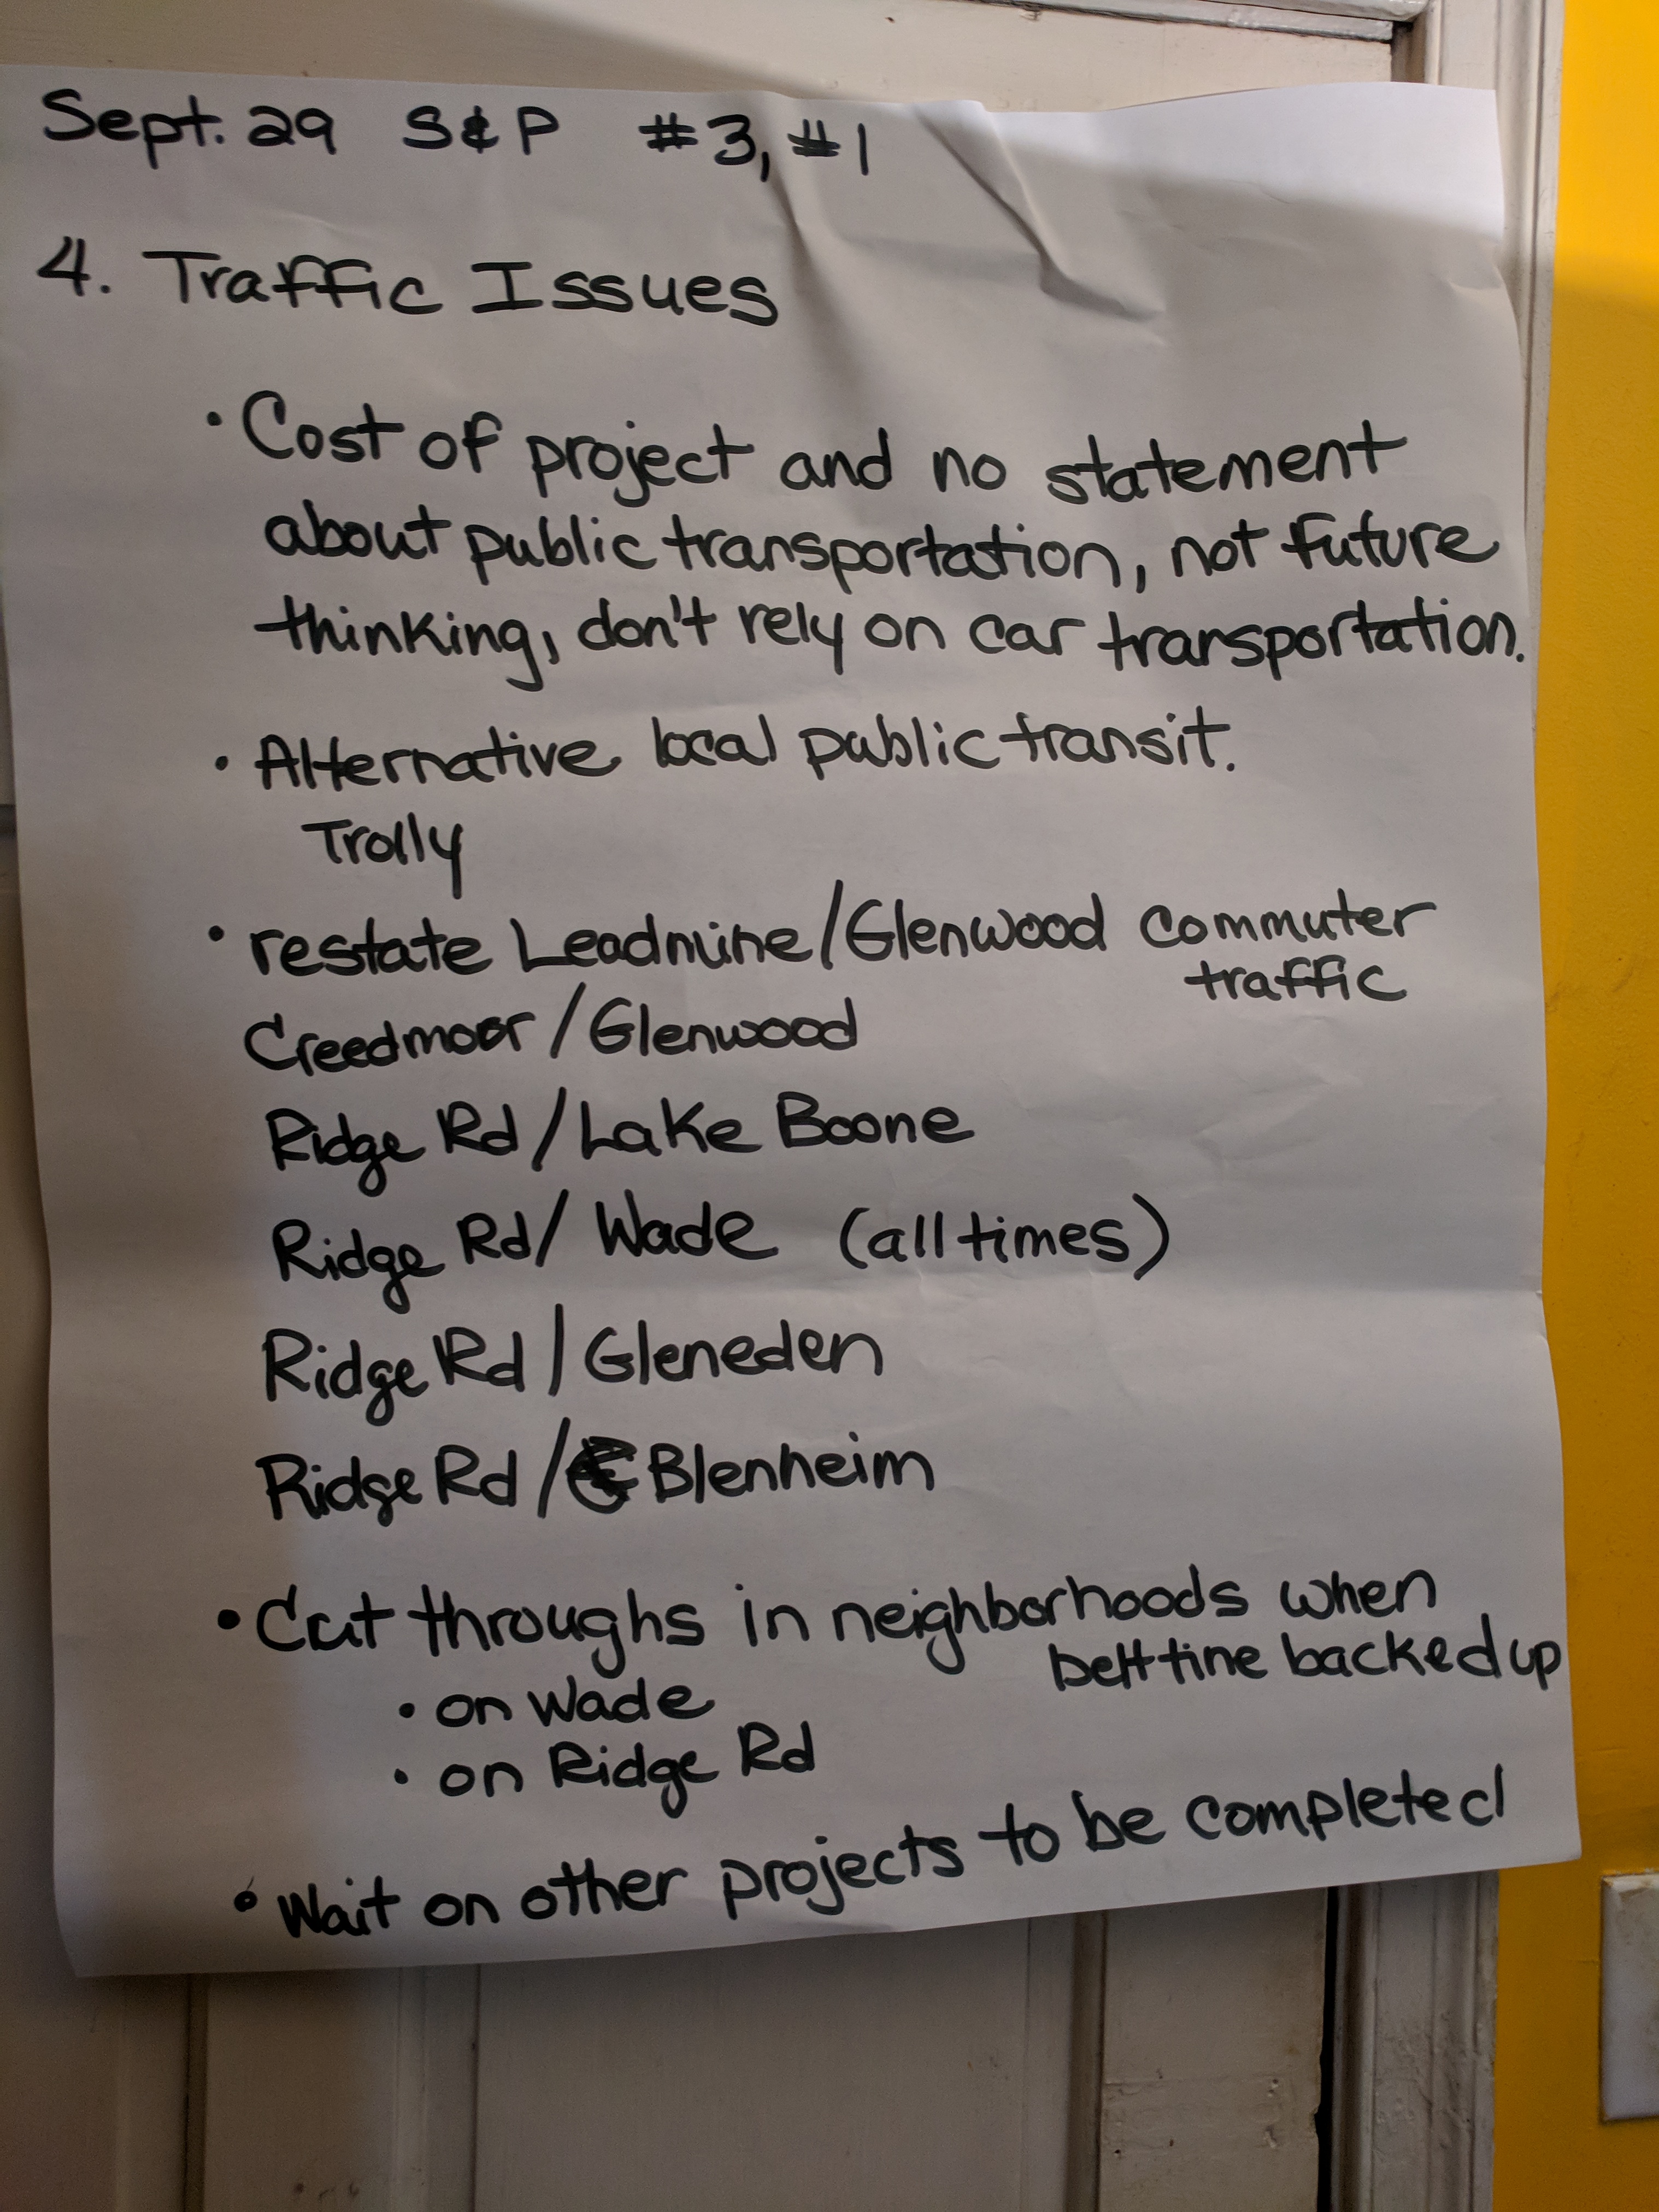 Sept. 29 S&P #3, #1
4. Traffic Issues
• Cost of project and no statement
about public transportation, not future
thinking, don't rely on car transportation.
• Alternative local public transit.
Trolly
• restate Leadmine/Glenwood commuter
traffic
Creedmoor/Glenwood
Ridge Rd/Lake Boone
Ridge Rd/Wade (all times)
Ridge Rd/Gleneden
Ridge Rd/Blenheim
• Cut throughs in neighborhoods when
beltline backed up
• on Wade
• on Ridge Rd
• Wait on other projects to be completed